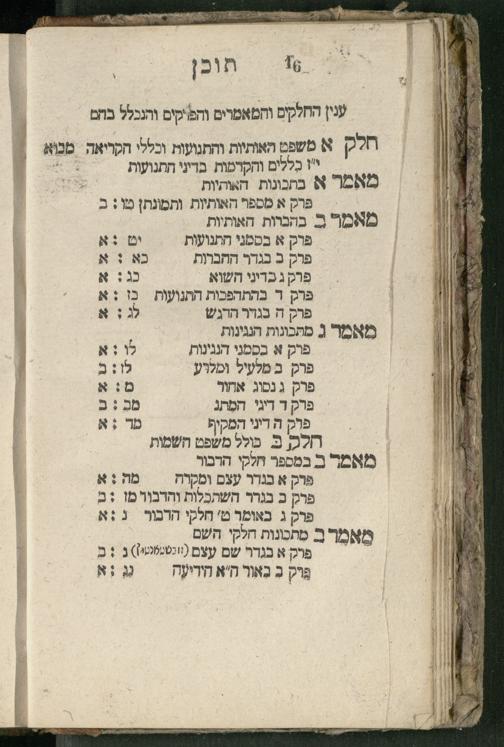 תוכן 16
ענין החלקים והמאמרים והפרקים והנכלל בהם
חלק א משפט האותיות והתנועות וכללי הקריאה מבוא
י"ו כללים והקדמות בדיני התנועות
מאמר א בתכונות האותיות
פרק א מספר האותיות ותמונתן טו : ב
מאמר ב בהברות האותיות
פרק א בסמני התנועות יט : א
פרק ב בגדר החברות כא : א
פרק ג בדיני השוא כג : א
פרק ד בהתהפכות התנועות כז : א
פרק ה בגדר הדגש לג : א
מאמר ג מתכונות הנגינות
פרק א בסמני הנגינות לו : א
פרק ב מלעיל ומלרע לז : ב
פרק ג נסוג אחור מ : א
פרק ד דיני המתג מב : ב
פרק ה דיני המקיף מד : א
חלק ב כולל משפט השמות
מאמר ב במספר חלקי הדבור
פרק א בגדר עצם ומקרה מה : א
פרק ב בגדר השתכלות והדבור מו : ב
פרק ג באומר ט' חלקי הדבור נ : א
מאמר ב מתכונות חלקי השם
פרק א בגדר שם עצם נ : ב
פרק ב באור ה"א הידיעה נג : א